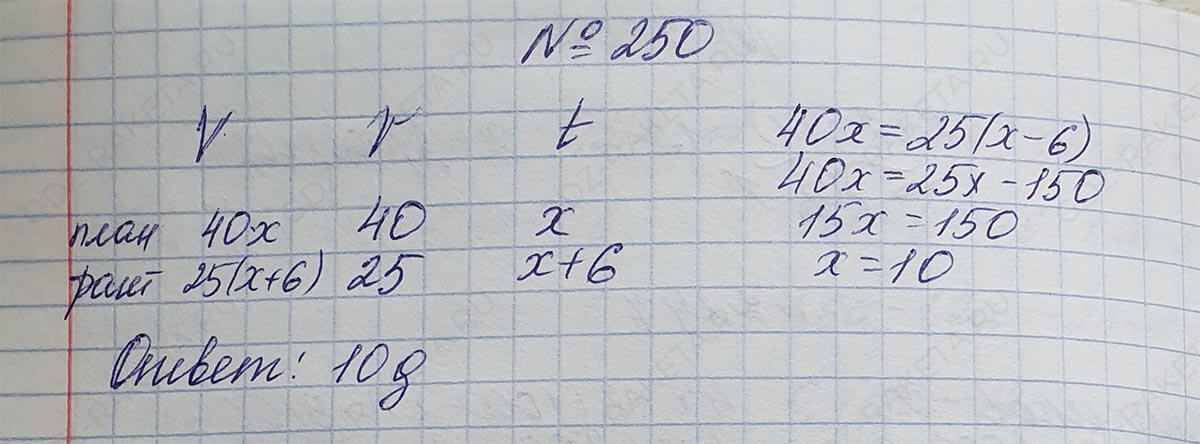 № 250
V r t
план 40x 40 x
факт 25(x+6) 25 x+6
40x=25(x-6)
40x=25x-150
15x=150
x=10
Ответ: 10д